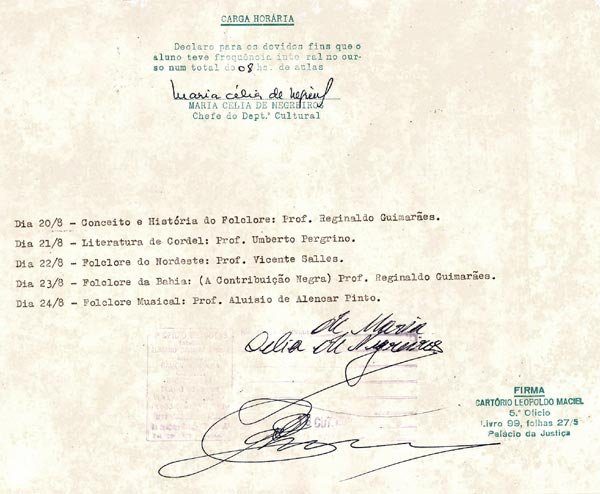 CARGA HORÁRIA
Declaro para os devidos fins que o
aluno teve frequência inte ral no cur-
so num total do 08 hs. de aulas
Maria Célia de Negreiros
MARIA CELIA DE NEGREIROS
Chefe do Dept.º Cultural
Dia 20/8 - Conceito e História do Folclore: Prof. Reginaldo Guimarães.
Dia 21/8 - Literatura de Cordel: Prof. Umberto Pergrino.
Dia 22/8 - Folclore do Nordeste: Prof. Vicente Salles.
Dia 23/8 - Folclore da Bahia: (A Contribuição Negra) Prof. Reginaldo Guimarães.
Dia 24/8 - Folclore Musical: Prof. Aluisio de Alencar Pinto.
de Maria
Celia de Negreiros
FIRMA
CARTÓRIO LEOPOLDO MACIEL
5.º Ofício
Livro 99, folhas 27/5
Palácio da Justiça